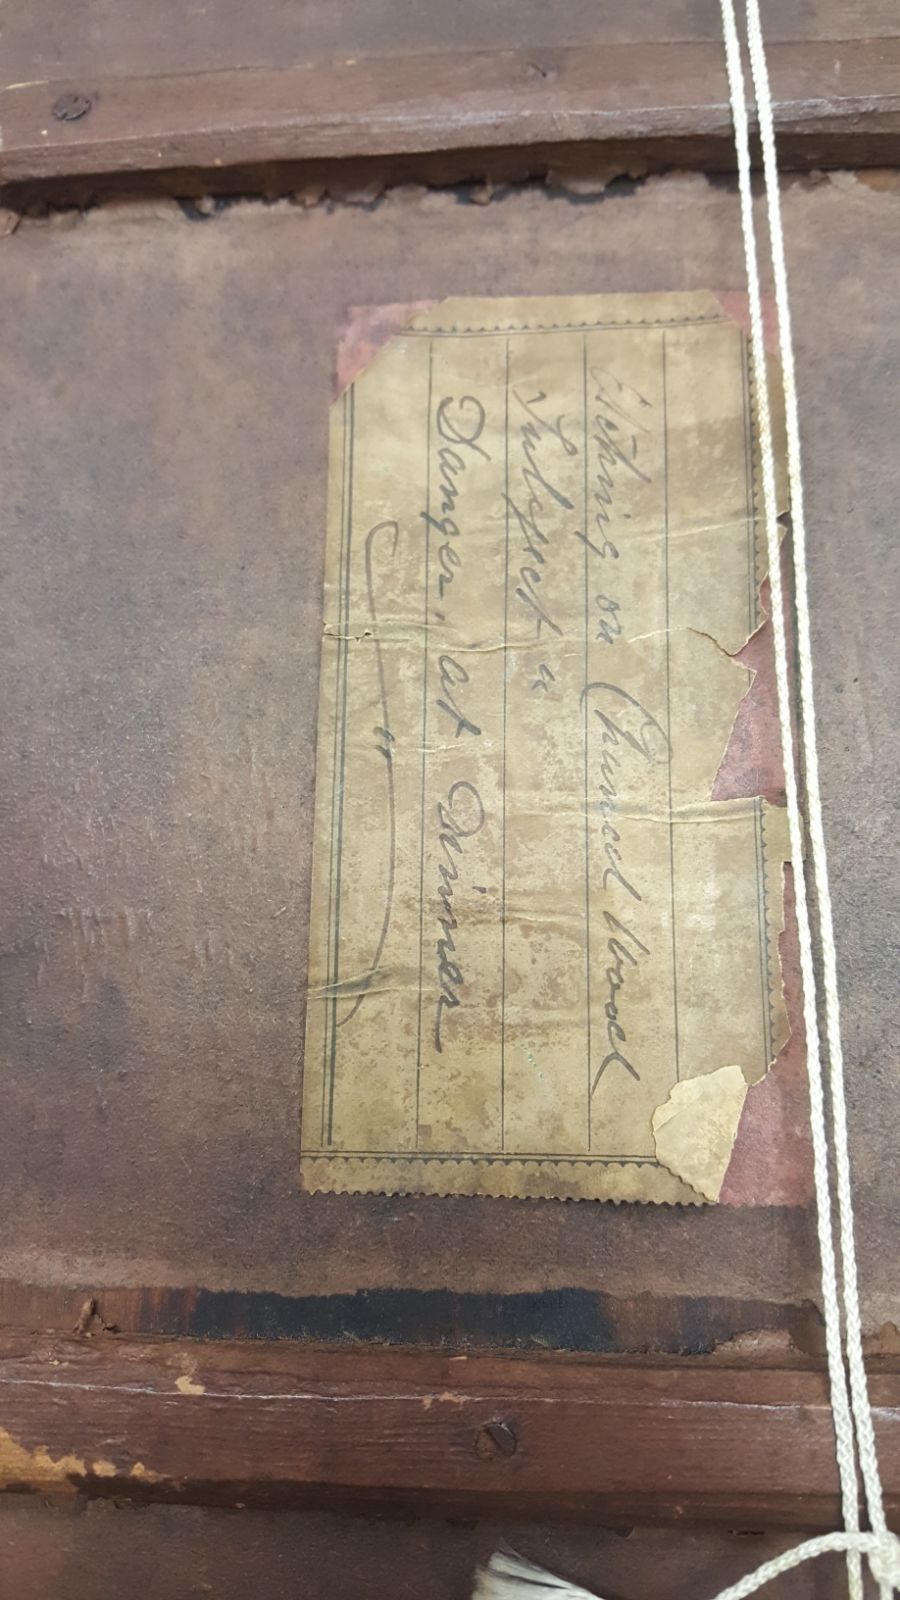 Etching on Charred Wood
Subject "
Danger, at Dinner
"